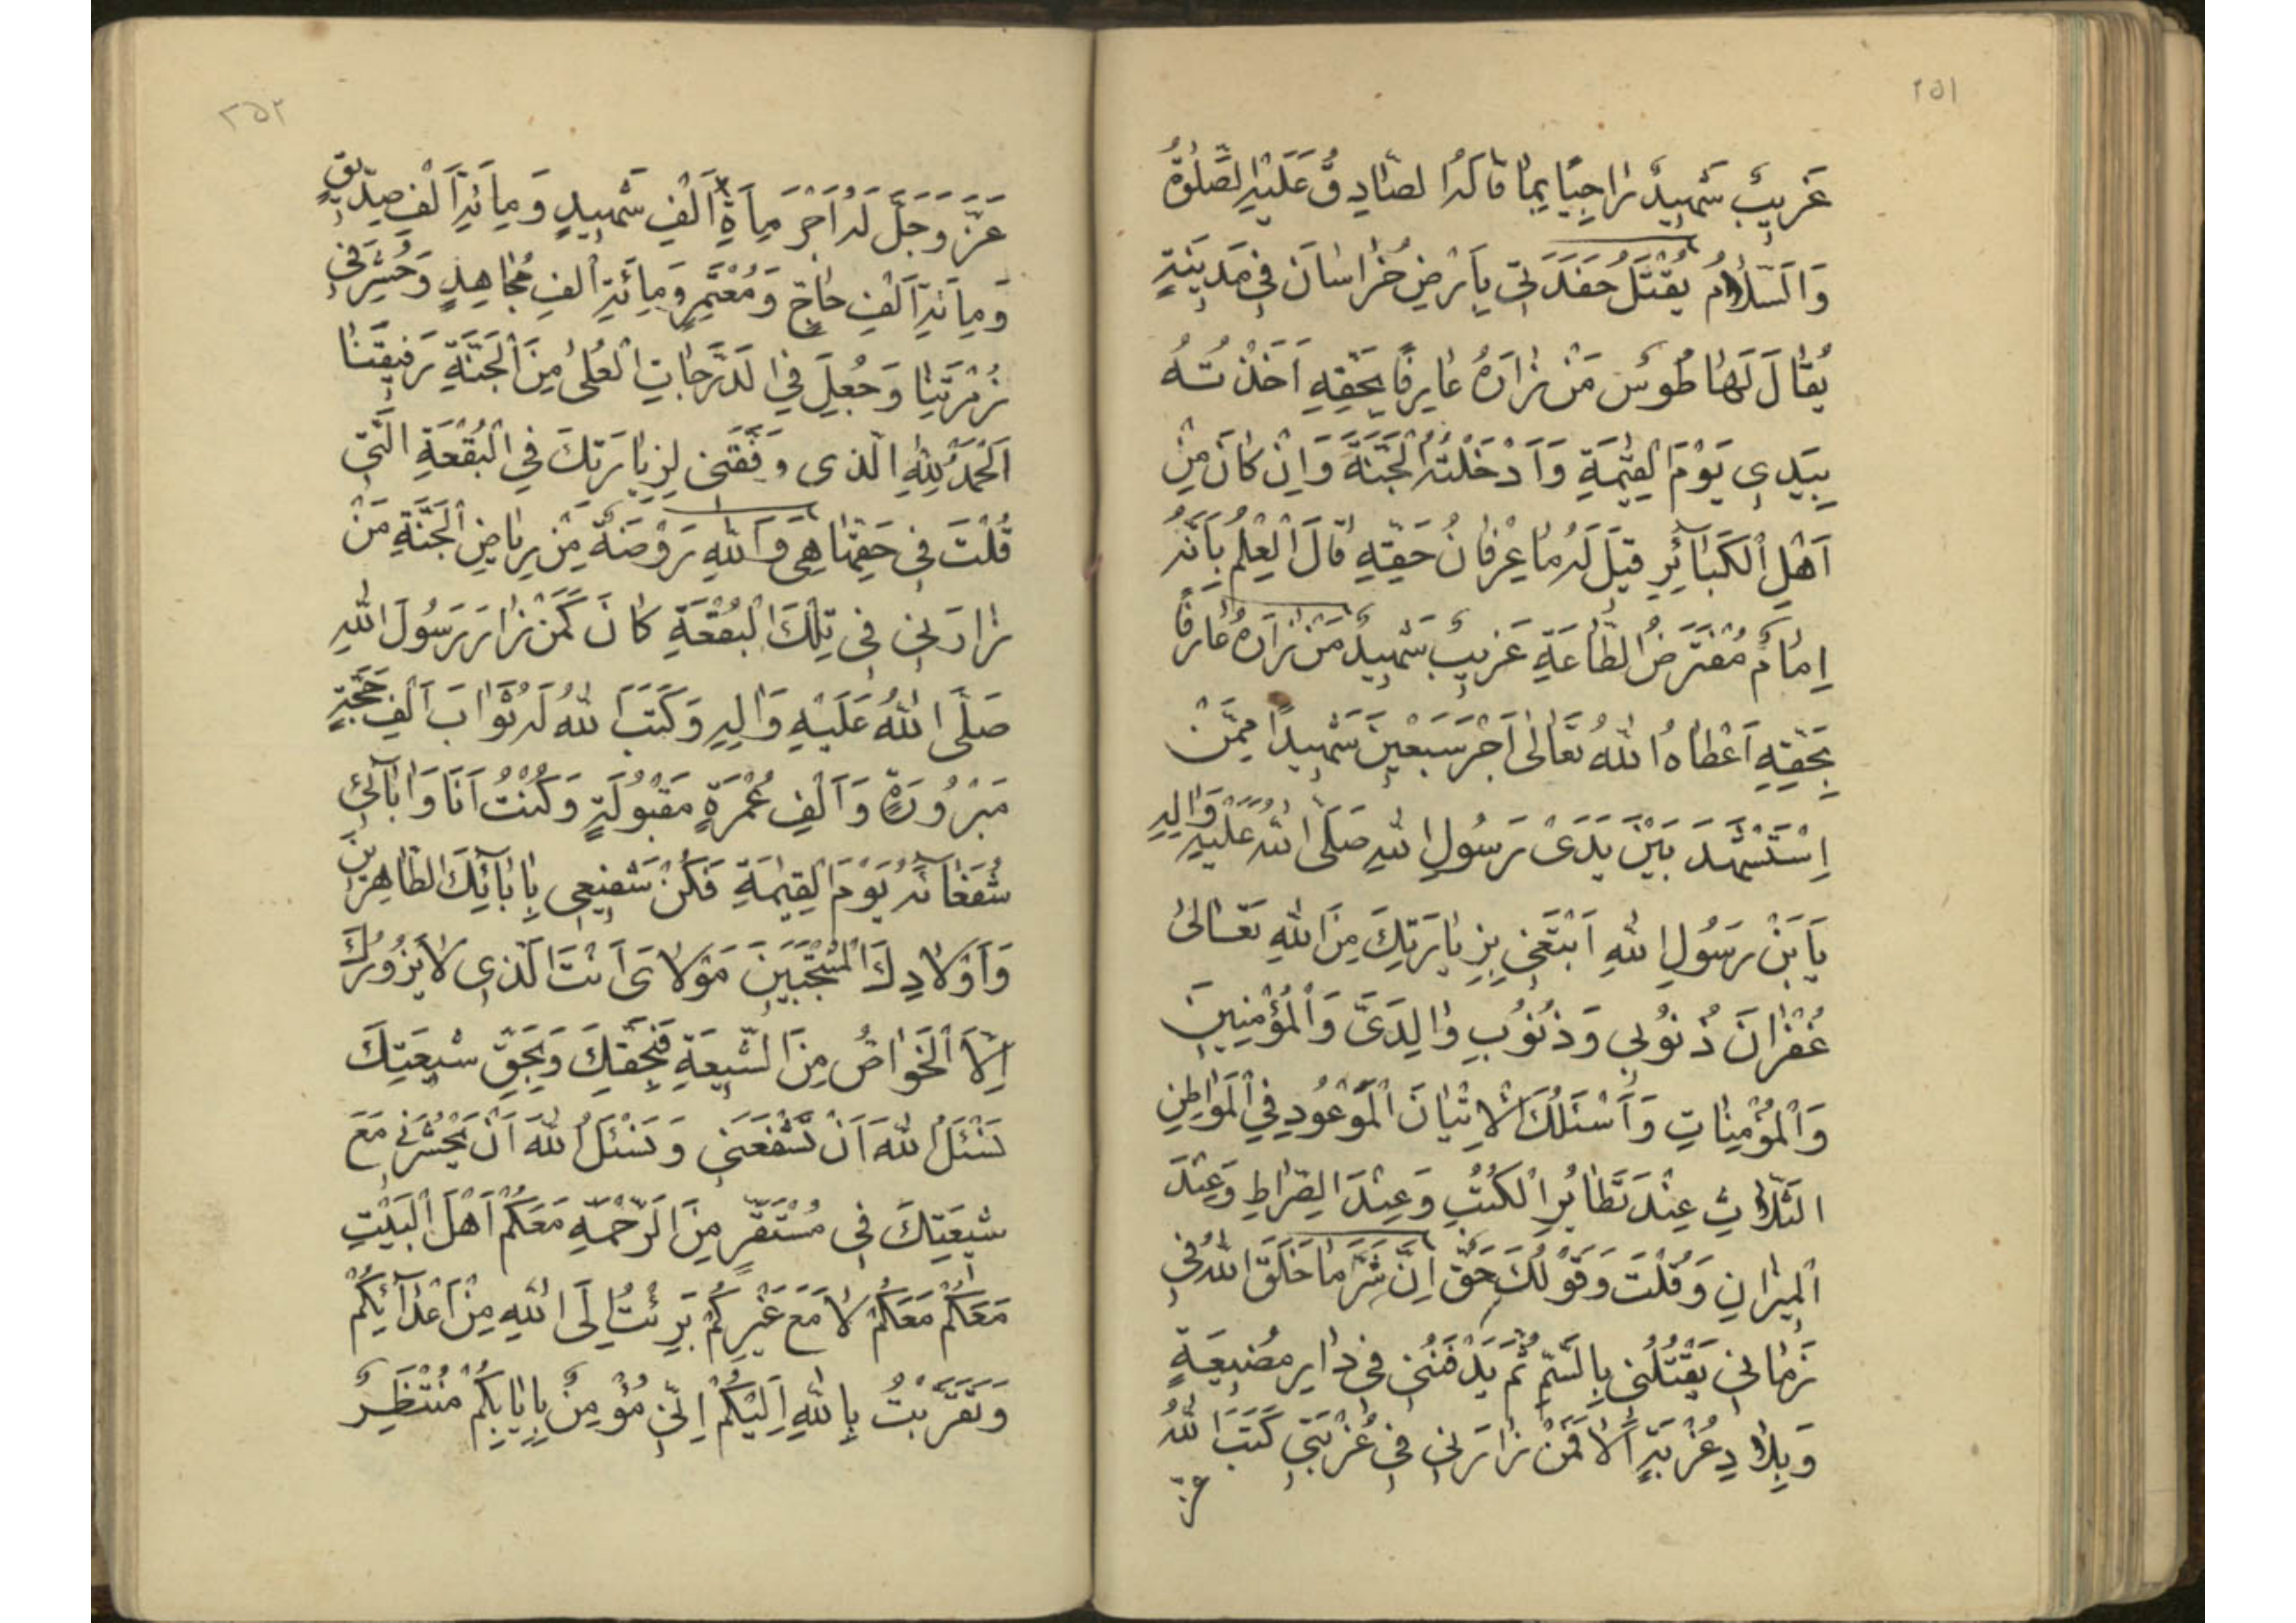 ٢٥١
غَرِيبٌ شَهِيدٌ رَاجِيًا بِمَا قَالَهُ الصَّادِقُ عَلَيْهِ الصَّلٰوةُ
وَالسَّلَامُ يُقْتَلُ حَفَدَتِي بِاَرْضِ خُرَاسَانَ فِي مَدِينَةٍ
يُقَالُ لَهَا طُوسُ مَنْ زَارَهُ عَارِفًا بِحَقِّهِ اَخَذْتُهُ
بِيَدِي يَوْمَ الْقِيٰمَةِ وَاَدْخَلْتُهُ الْجَنَّةَ وَاِنْ كَانَ مِنْ
اَهْلِ الْكَبَائِرِ قِيلَ لَهُ مَا عِرْفَانُ حَقِّهِ قَالَ الْعِلْمُ بِاَنَّهُ
اِمَامٌ مُفْتَرَضُ الطَّاعَةِ غَرِيبٌ شَهِيدٌ مَنْ زَارَهُ عَارِفًا
بِحَقِّهِ اَعْطَاهُ اللّٰهُ تَعَالٰى اَجْرَ سَبْعِينَ شَهِيدًا مِمَّنْ
اِسْتَشْهَدَ بَيْنَ يَدَىْ رَسُولِ اللّٰهِ صَلَّى اللّٰهُ عَلَيْهِ وَاٰلِهِ
يَا بْنَ رَسُولِ اللّٰهِ اَبْتَغِي بِزِيَارَتِكَ مِنَ اللّٰهِ تَعَالٰى
غُفْرَانَ ذُنُوبِي وَذُنُوبِ وَالِدَىَّ وَالْمُؤْمِنِينَ
وَالْمُؤْمِنَاتِ وَاَسْئَلُكَ الْاِتْيَانَ الْمَوْعُودِ فِي الْمَوَاطِنِ
الثَّلَاثِ عِنْدَ تَطَايُرِ الْكُتُبِ وَعِنْدَ الصِّرَاطِ وَعِنْدَ
الْمِيزَانِ وَقُلْتَ وَقَوْلُكَ حَقٌّ اِنَّ شَرَّ مَا خَلَقَ اللّٰهُ فِي
زَمَانِي يَقْتُلُنِي بِالسَّمِّ ثُمَّ يَدْفَنُنِي فِي دَارِ مَضِيعَةٍ
وَبِلَادِ غُرْبَةٍ اَلَا فَمَنْ زَارَنِي فِي غُرْبَتِي كَتَبَ اللّٰهُ
عزّ
٢٥٢
عَزَّ وَجَلَّ لَهُ اَجْرَ مِاَةِ اَلْفِ شَهِيدٍ وَمِائَةِ اَلْفِ صِدِّيقٍ
وَمِائَةِ اَلْفِ حَاجٍّ وَمُعْتَمِرٍ وَمِائَةِ اَلْفِ مُجَاهِدٍ وَحُشِرَ فِي
زُمْرَتِنَا وَجُعِلَ فِي الدَّرَجَاتِ الْعُلٰى مِنَ الْجَنَّةِ رَفِيقَنَا
اَلْحَمْدُ لِلّٰهِ الَّذِي وَفَّقَنِي لِزِيَارَتِكَ فِي الْبُقْعَةِ الَّتِي
قُلْتَ فِي حَقِّهَا هِيَ وَاللّٰهِ رَوْضَةٌ مِنْ رِيَاضِ الْجَنَّةِ مَنْ
زَارَنِي فِي تِلْكَ الْبُقْعَةِ كَانَ كَمَنْ زَارَ رَسُولَ اللّٰهِ
صَلَّى اللّٰهُ عَلَيْهِ وَاٰلِهِ وَكَتَبَ اللّٰهُ لَهُ ثَوَابَ اَلْفِ حَجَّةٍ
مَبْرُورَةٍ وَاَلْفِ عُمْرَةٍ مَقْبُولَةٍ وَكُنْتُ اَنَا وَاٰبَائِي
شُفَعَائَهُ يَوْمَ الْقِيٰمَةِ فَكُنْ شَفِيعِي بِاٰبَائِكَ الطَّاهِرِينَ
وَاَوْلَادِكَ الْمُنْتَجَبِينَ مَوْلَاىَ اَنْتَ الَّذِي لَا يَزُورُكَ
اِلَّا الْخَوَاصُّ مِنَ الشِّيعَةِ فَبِحَقِّكَ وَبِحَقِّ شِيعَتِكَ
تَسْئَلُ اللّٰهَ اَنْ تَشْفَعَنِي وَتَسْئَلُ اللّٰهَ اَنْ يَحْشُرَنِي مَعَ
شِيعَتِكَ فِي مُسْتَقَرٍّ مِنَ الرَّحْمَةِ مَعَكُمْ اَهْلَ الْبَيْتِ
مَعَكُمْ مَعَكُمْ لَا مَعَ غَيْرِكُمْ بَرِئْتُ اِلَى اللّٰهِ مِنْ اَعْدَائِكُمْ
وَتَقَرَّبْتُ بِاللّٰهِ اِلَيْكُمْ اِنِّي مُؤْمِنٌ بِاِيَابِكُمْ مُنْتَظِرٌ